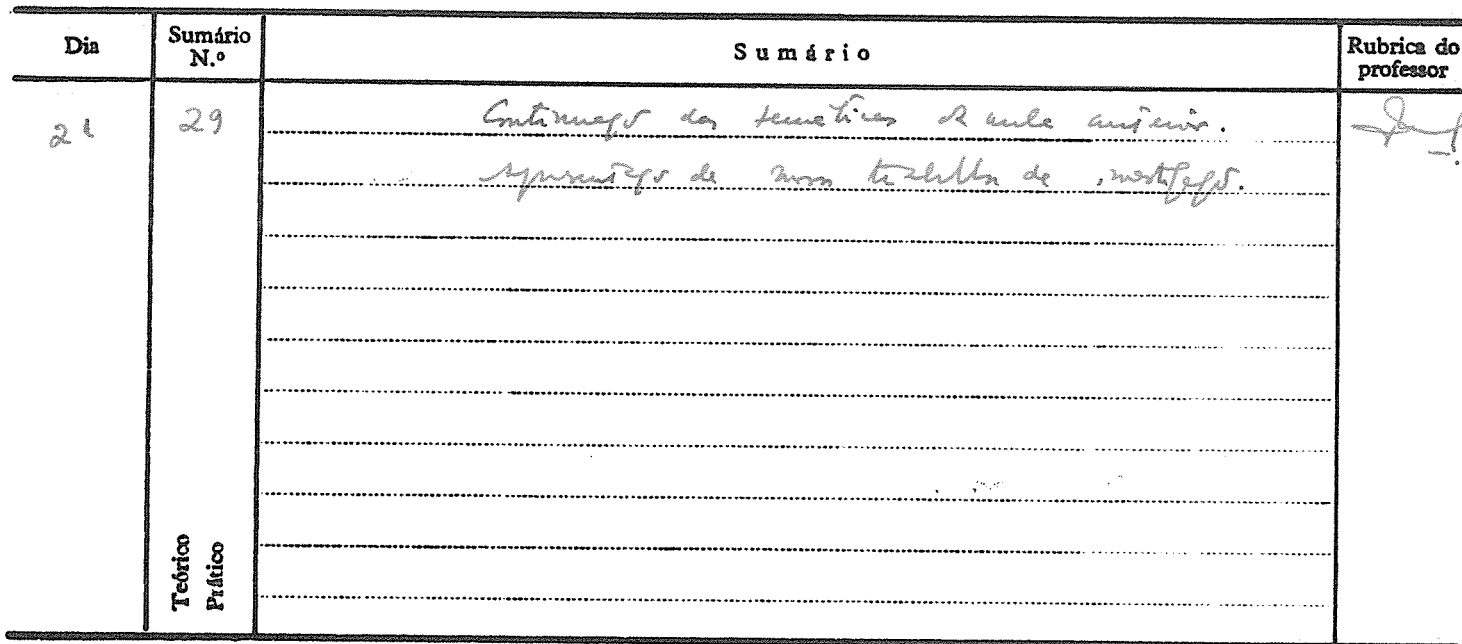 Dia
Sumário N.º
Sumário
Rubrica do professor
29
Continuação das temáticas da aula anterior.
Apresentação de novos trabalhos de investigação.
Teórico
Prático